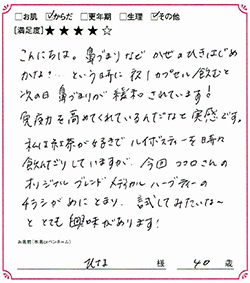 □お肌 ☑からだ □更年期 □生理 ☑その他
[満足度]★★★★☆
こんにちは。鼻づまりなど かぜのひきはじめ
かな?…という時に 秋1カプセル飲むと
次の日 鼻づまりが緩和されています!
免疫力を高めてくれているんだなと実感です。
私は紅茶が好きで ルイボスティーを日々
飲んだりしていますが、今回 ココロさんの
オリジナル ブレンド メディカル ハーブティーの
チラシがめにとまり、試してみたいな〜
と とても興味があります!
お名前(本名orペンネーム)
ひさま 様 40歳